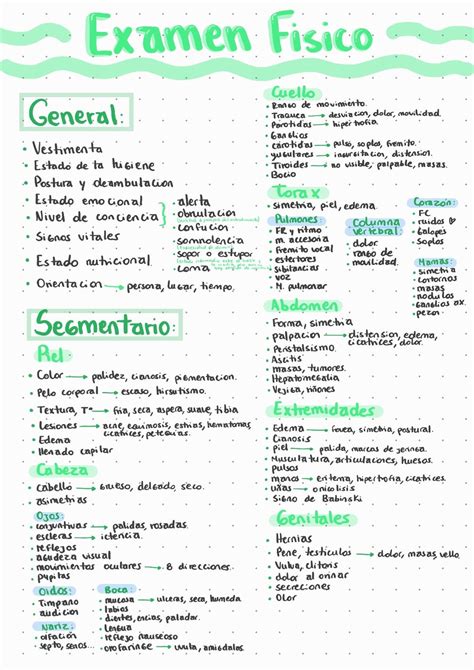 Examen Fisico
General:
• Vestimenta
• Estado de la higiene
• Postura y deambulacion
• Estado emocional
• Nivel de conciencia
• Signos vitales
• Estado nutricional
• Orientacion → persona, lugar, tiempo.
• alerta
• obnulacion
• confucion
• somnolencia
• sopor o estupor
• coma
Segmentario:
Piel:
• Color → palidez, cianosis, pigmentacion.
• Pelo corporal → escaso, hirsutismo.
• Textura, T° → fria, seca, aspera, suave, tibia
• Lesiones → acne, equimosis, estrias, hematomas,
cicatrices, petequias.
• Edema
• llenado capilar
Cabeza
• cabello → grueso, delgado, seco.
• asimetrias
Ojos:
• conjuntivas → palidas, rosadas.
• escleras → ictericia.
• reflejos
• agudeza visual
• movimientos oculares → 8 direcciones.
• pupilas
Oidos:
• Timpano
• audicion
Nariz:
• olfación
• septo, senos...
Boca:
• mucosa → ulceras, seca, humeda.
• labios
• dientes, encias, paladar.
• lengua
• reflejo nauseoso
• orofaringe → uvula, amigdalas.
Cuello
• Rango de movimiento.
• Traquea → desviacion, dolor, movilidad.
• Parotidas → hipertrofia.
• Ganglios
• carotidas → pulso, soplos, fremito.
• yugulares → ingurgitacion, distension.
• Tiroides → no visible, palpable, masas.
• Bocio
Torax
• simetria, piel, edema.
Pulmones:
• FR y ritmo
• m. accesoria
• Fremito vocal
• estertores
• Sibilancias
• voz
• M. pulmonar
Columna
vertebral:
• dolor
• rango de
movilidad.
Corazón:
• FC
• ruidos
• Galopes
• Soplos
Mamas:
• simetria
• contornos
• masas
• nodulos
• Ganglios ax.
• pezon
Abdomen
• Forma, simetria
• palpacion → distension, edema,
cicatrices, dolor.
• Peristalsismo
• Ascitis
• masas, tumores.
• Hepatomegalia
• Vejiga, riñones
Extremidades
• Edema → fovea, simetria, postural.
• Cianosis
• piel → palida, marcas de jeringa.
• Musculatura, articulaciones, huesos.
• pulsos
• manos → eritema, hipertrofia, cicatrices.
• uñas → onicolisis
• Signo de Babinski
Genitales
• Hernias
• Pene, testiculos → dolor, masas, vello.
• Vulva, clitoris
• dolor al orinar
• secreciones
• Olor